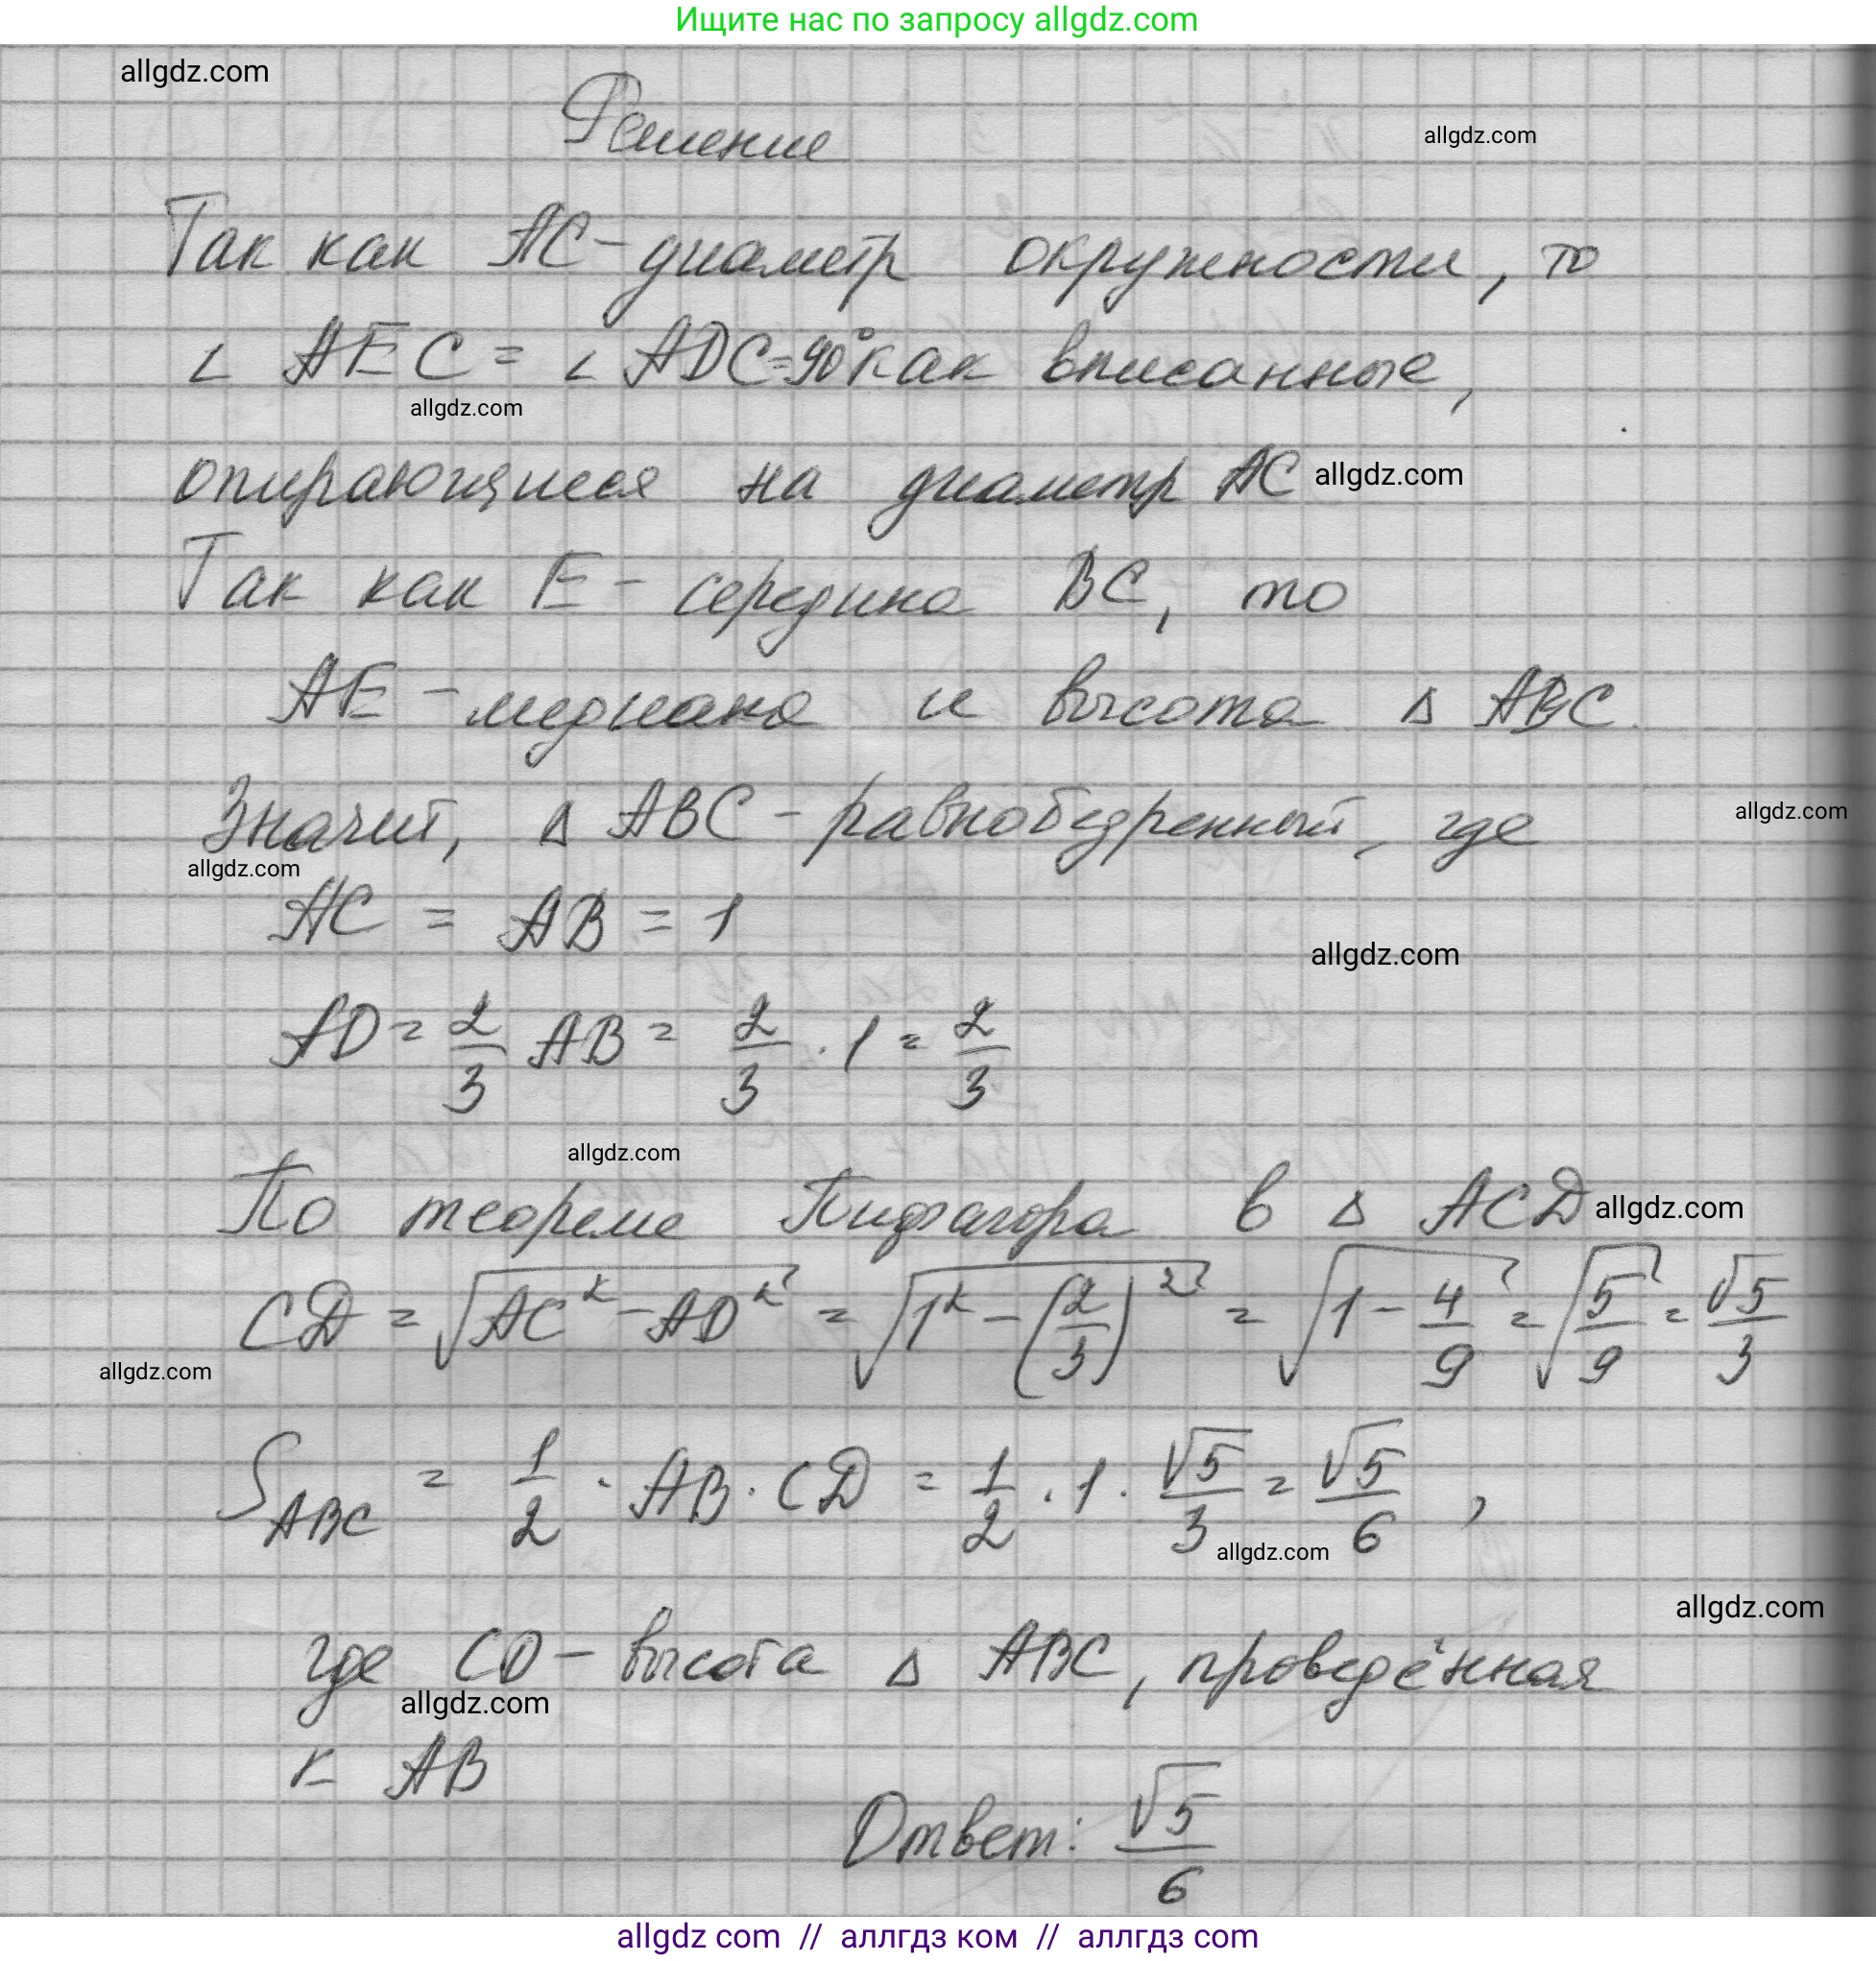 Ищите нас по запросу allgdz.com
allgdz.com
Решение
allgdz.com
Так как AC - диаметр окружности, то
∠ AEC = ∠ ADC = 90° как вписанные,
allgdz.com
опирающиеся на диаметр AC allgdz.com
Так как E - середина BC, то
AE - медиана и высота Δ ABC.
Значит, Δ ABC - равнобедренный, где
allgdz.com
allgdz.com
AC = AB = 1
allgdz.com
AD = 2/3 AB = 2/3 · 1 = 2/3
allgdz.com
По теореме Пифагора в Δ ACD allgdz.com
CD = √(AC² - AD²) = √(1² - (2/3)²) = √(1 - 4/9) = √(5/9) = √5/3
allgdz.com
S_ABC = 1/2 · AB · CD = 1/2 · 1 · √5/3 = √5/6 ,
allgdz.com
allgdz.com
где CD - высота Δ ABC, проведённая
allgdz.com
к AB
Ответ: √5/6
allgdz com // аллгдз ком // аллгдз com